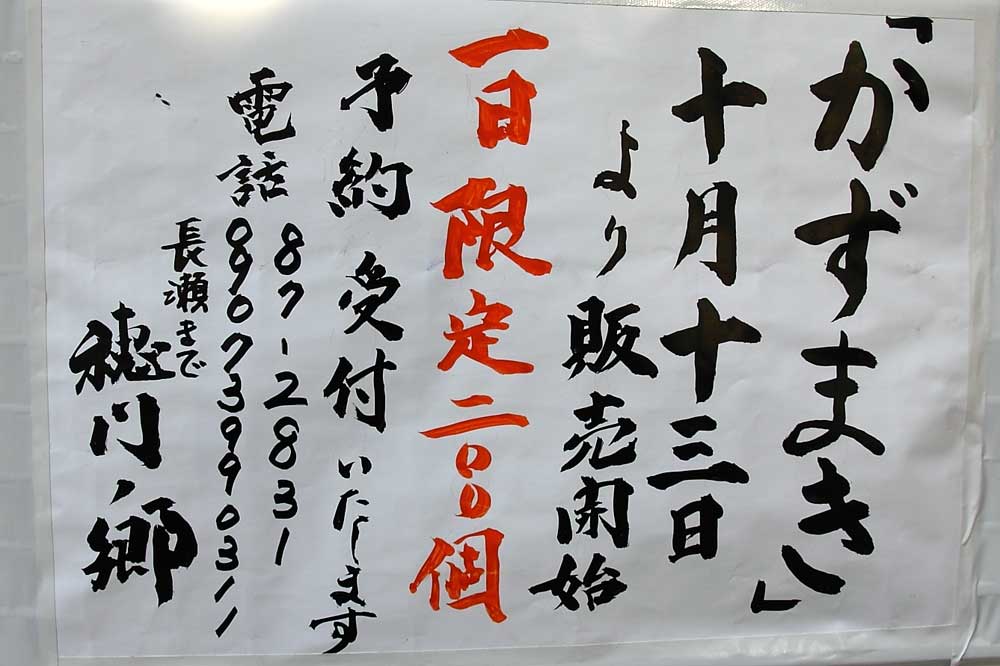 「かずまき」
十月十三日
より販売開始
一日限定二〇〇個
予約受付いたします
電話 87-2831
09073990311
長瀬まで
穂門ノ郷